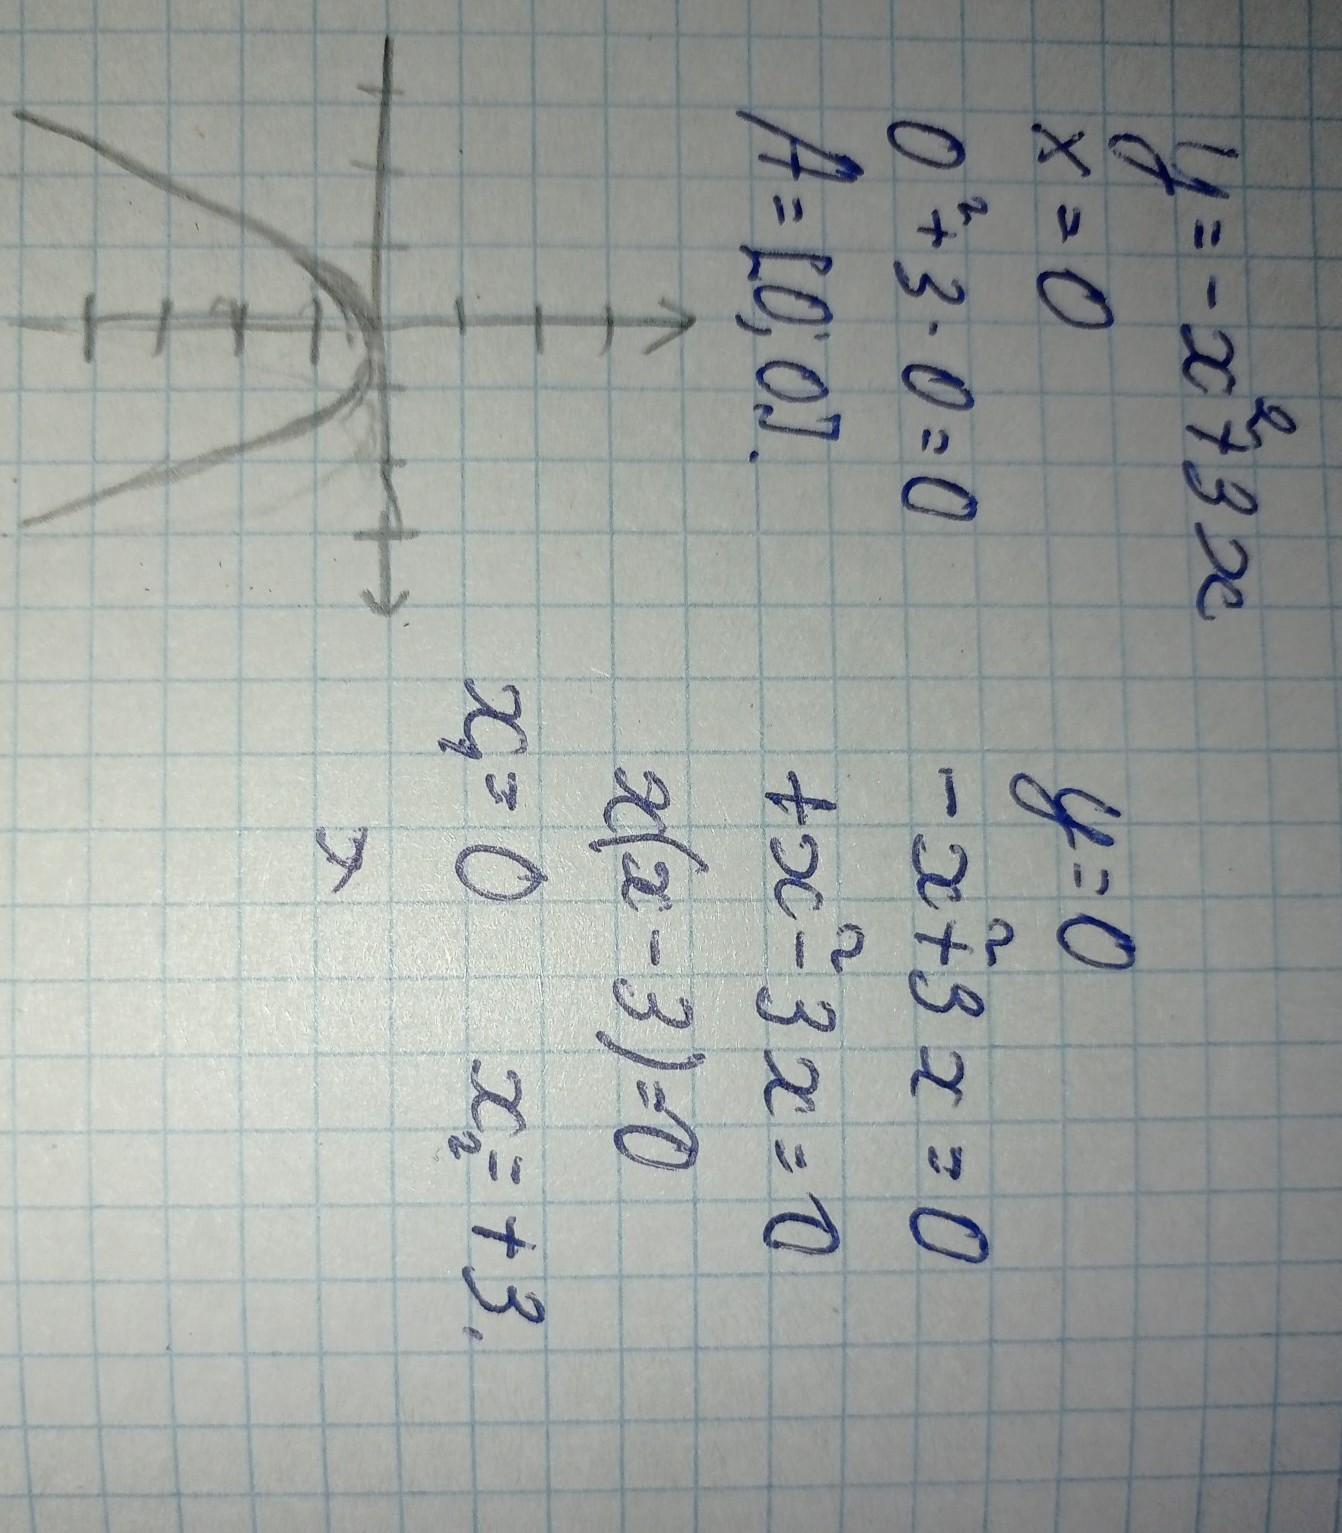 y = -x² + 3x
x = 0
0² + 3 · 0 = 0
A = [0; 0].
y = 0
-x² + 3x = 0
+x² - 3x = 0
x(x - 3) = 0
x₁ = 0 x₂ = +3.
x